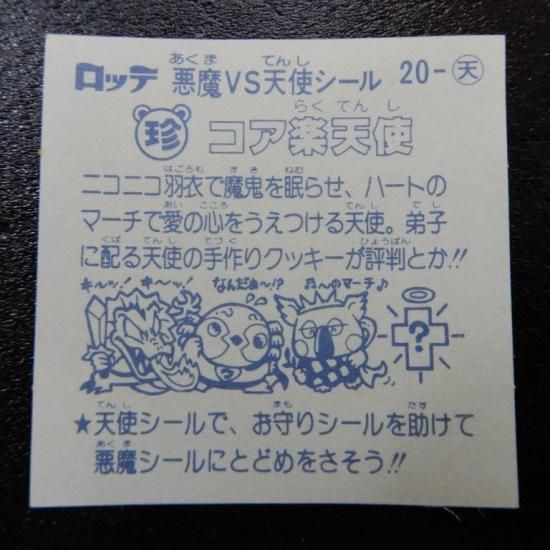 ロッテ 悪魔VS天使シール 20-天
珍 コア楽天使
ニコニコ羽衣で魔鬼を眠らせ、ハートの
マーチで愛の心をうえつける天使。弟子
に配る天使の手作りクッキーが評判とか!!
キ〜ッ! キ〜ッ! なんだぁ〜!? ♬〜のマーチ♪
?
★天使シールで、お守りシールを助けて
悪魔シールにとどめをさそう!!